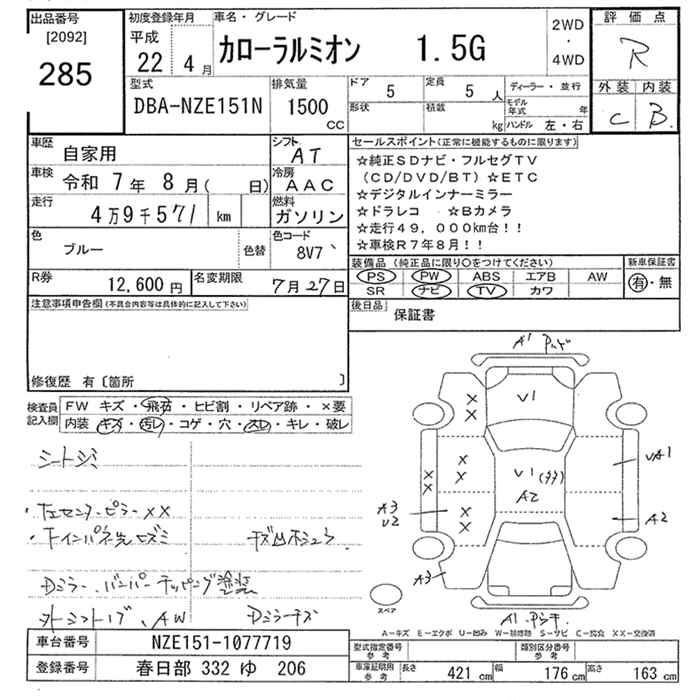 出品番号
[2092]
285
初度登録年月
平成
22 4月
車名・グレード
カローラルミオン 1.5G
2WD
・
4WD
評価点
R
外装 内装
C B
型式
DBA-NZE151N
排気量
1500
CC
ドア 5
定員 5 人
形状
積載 kg
ディーラー・並行
モデル年式 年
ハンドル 左・右
車歴 自家用
シフト AT
車検 令和 7年 8月( 日)
冷房 AAC
走行 4万9千571 km
燃料 ガソリン
色 ブルー
色替
色コード 8V7
R券 12,600円
名変期限 7月27日
セールスポイント(正常に機能するものに限ります)
☆純正SDナビ・フルセグTV
(CD/DVD/BT)☆ETC
☆デジタルインナーミラー
☆ドラレコ ☆Bカメラ
☆走行49,000km台!!
☆車検R7年8月!!
装備品(純正品に限り○をつけてください)
PS PW ABS エアB AW
SR ナビ TV カワ
新車保証書
有・無
後日品 保証書
注意事項申告欄(不具合内容等は具体的に記入して下さい)
修復歴 有〔箇所 〕
検査員記入欄
FW キズ・飛石・ヒビ割・リペア跡・×要
内装 キズ・汚レ・コゲ・穴・スレ・キレ・破レ
シートシミ
左センターピラーXX
キズ凹ホシュウ
Dミラー、バンパーチッピング塗装
外、AW Dミラーキズ
A1
V1
V1
A2
UA1
A2
A3
U2
A3
A1
スペア
A-キズ E-エクボ U-凹み W-補修跡 S-サビ C-腐食 XX-交換済
車台番号 NZE151-1077719
登録番号 春日部 332 ゆ 206
型式指定番号 参考
類別区分番号 参考
車庫証明用 参考
長さ 421 cm 幅 176 cm 高さ 163 cm